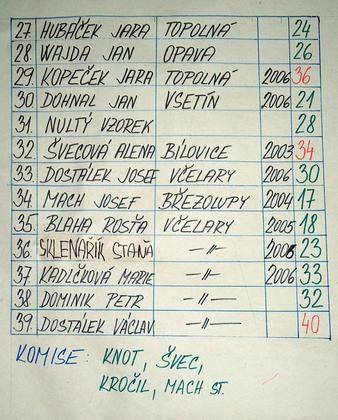 27. HUBÁČEK JARA TOPOLNÁ 24
28. WAJDA JAN OPAVA 26
29. KOPEČEK JARA TOPOLNÁ 2006 36
30 DOHNAL JAN VSETÍN 2006 21
31. NULTÝ VZOREK 28
32. ŠVECOVÁ ALENA BÍLOVICE 2003 34
33. DOSTÁLEK JOSEF VČELARY 2006 30
34 MACH JOSEF BŘEZOLUPY 2004 17
35. BLAHA ROSŤA VČELARY 2005 18
36. SKLENAŘÍK STAŇA —〃— 2005 23
37. KADLČKOVÁ MARIE —〃— 2006 33
38 DOMINIK PETR —〃— 32
39. DOSTÁLEK VÁCLAV —〃— 40
KOMISE: KNOT, ŠVEC,
KROČIL, MACH ST.